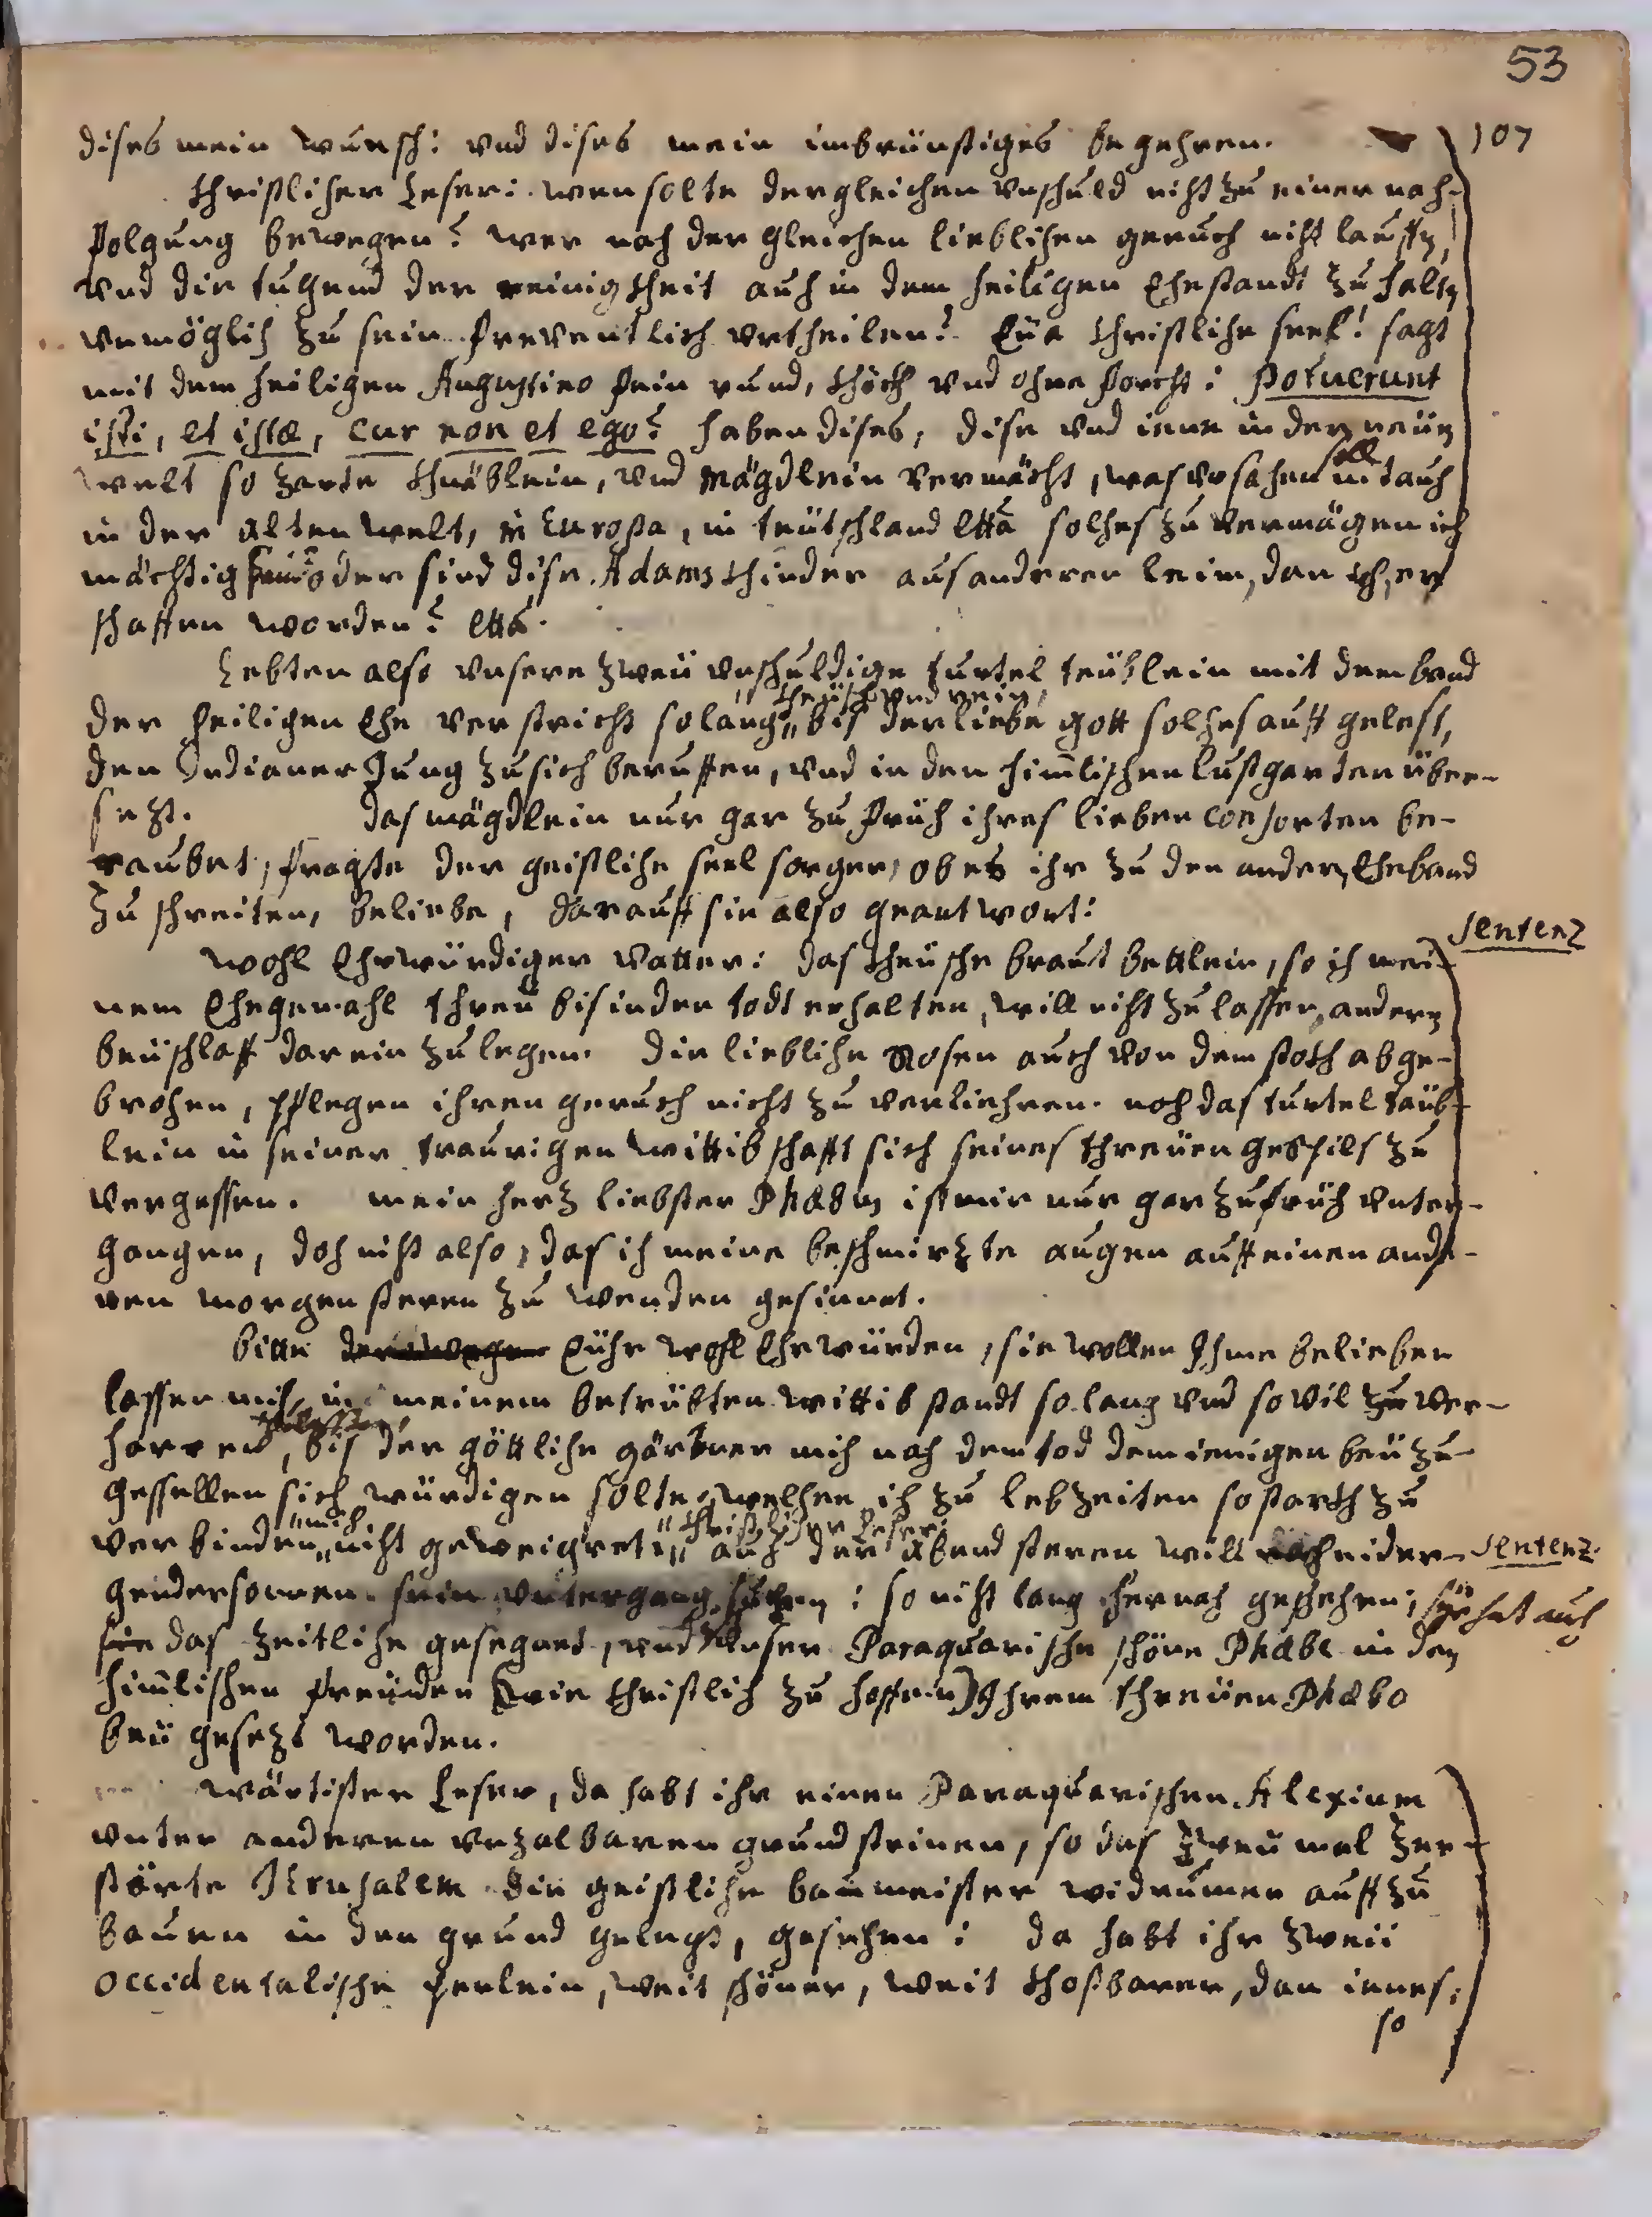 53
dises mein wunsch: vnd dises mein inbrünstiges begehren. 107
Christlicher Leser: wen solte dergleichen vnschuld nicht zu einer nach-
folgung bewegen? wer nach der gleichen lieblichen geruch nicht lauffen,
vnd die tugend der reinigkheit auch in dem heiligen Ehestandt zu halten
vnmöglich zu sein freventlich vrtheilen? Eüa christliche seel! sagt
mit dem heiligen Augustino fein rund, khöckh vnd ohne forcht: Potuerunt
isti, et istæ, cur non et ego? haben dises, dise vnd iene in der neüen
welt so zarte khnäblein, vnd Mägdlein vermöcht, was vrsachen soll nit auch
in der alten welt, in Europa, in teütschland etta solches zu vermögen ich
mächtig sein? oder sind dise Adams khinder aus anderen leim, dan ich, er-
schaffen worden? etta.
Lebten also vnsere zweü vnschuldige turtel teüblein mit dem band
kheüsch vnd rein,
der heiligen Ehe verstrickt so lang, bis der liebe gott solches auff gelest,
den Indianer Jung zu sich beruffen, vnd in den himlischen lustgarten über-
sezt. das mägdlein nur gar zu früh ihres lieben Consorten be-
raubet, fragte der geistliche seelsorger, ob es ihr zu den andern Eheband
zu schreiten, beliebe, darauff sie also geantwort:
Sentenz
wohl Ehrwürdiger vatter: das kheüsche braut bettlein, so ich mei-
nem Ehegemahl threü bis in den todt erhalten, will nicht zu lassen, andern
beüschlaff darein zu legen. die liebliche Rosen auch von dem stokh abge-
brochen, pflegen ihren geruch nicht zu verliehren. noch das turtel täub-
lein in seiner traurigen wittibschafft sich seines threüen gespils zu
vergessen. mein herz liebster Phæbus ist mir nur gar zu früh vnter-
gangen, doch nicht also, das ich meine beschmirzte augen auff einen ande-
ren morgensteren zu wenden gesinnet.
bitte Eühr wohl Ehrwürden, sie wollen Ihme belieben
lassen mich in meinem betrübten wittibstandt so lang vnd so vil zu ver-
zulassen,
harren, bis der göttliche gärtner mich nach dem tod demienigen beü zu-
gesellen sich würdigen solte, welchen ich zu lebzeiten so starkh zu
mich christlicher leser:
verbinden nicht geweigret. auch der abendsteren will nach nider- Sentenz.
gender sonnen sein vntergang suchen: so nicht lang hernach geschehen; sye hat auch
sie das zeitliche gesegnet, vnd vnser Paraquarische schöne Phæbe in den
himlischen freüden (wie christlich zu hoffen) Ihrem threüen Phæbo
beü gesezt worden.
wärtister leser, da habt ihr einen Paraquarischen Alexium
vnter anderen vnzalbaren grundsteinen, so das zweü mal zer-
störte Jerusalem die geistliche baumeister widerumen auff zu
bauen in den grund gelegt, gesehen: da habt ihr zweü
occidentalische perlein, weit schöner, weit khostbarer, dan ienes,
so